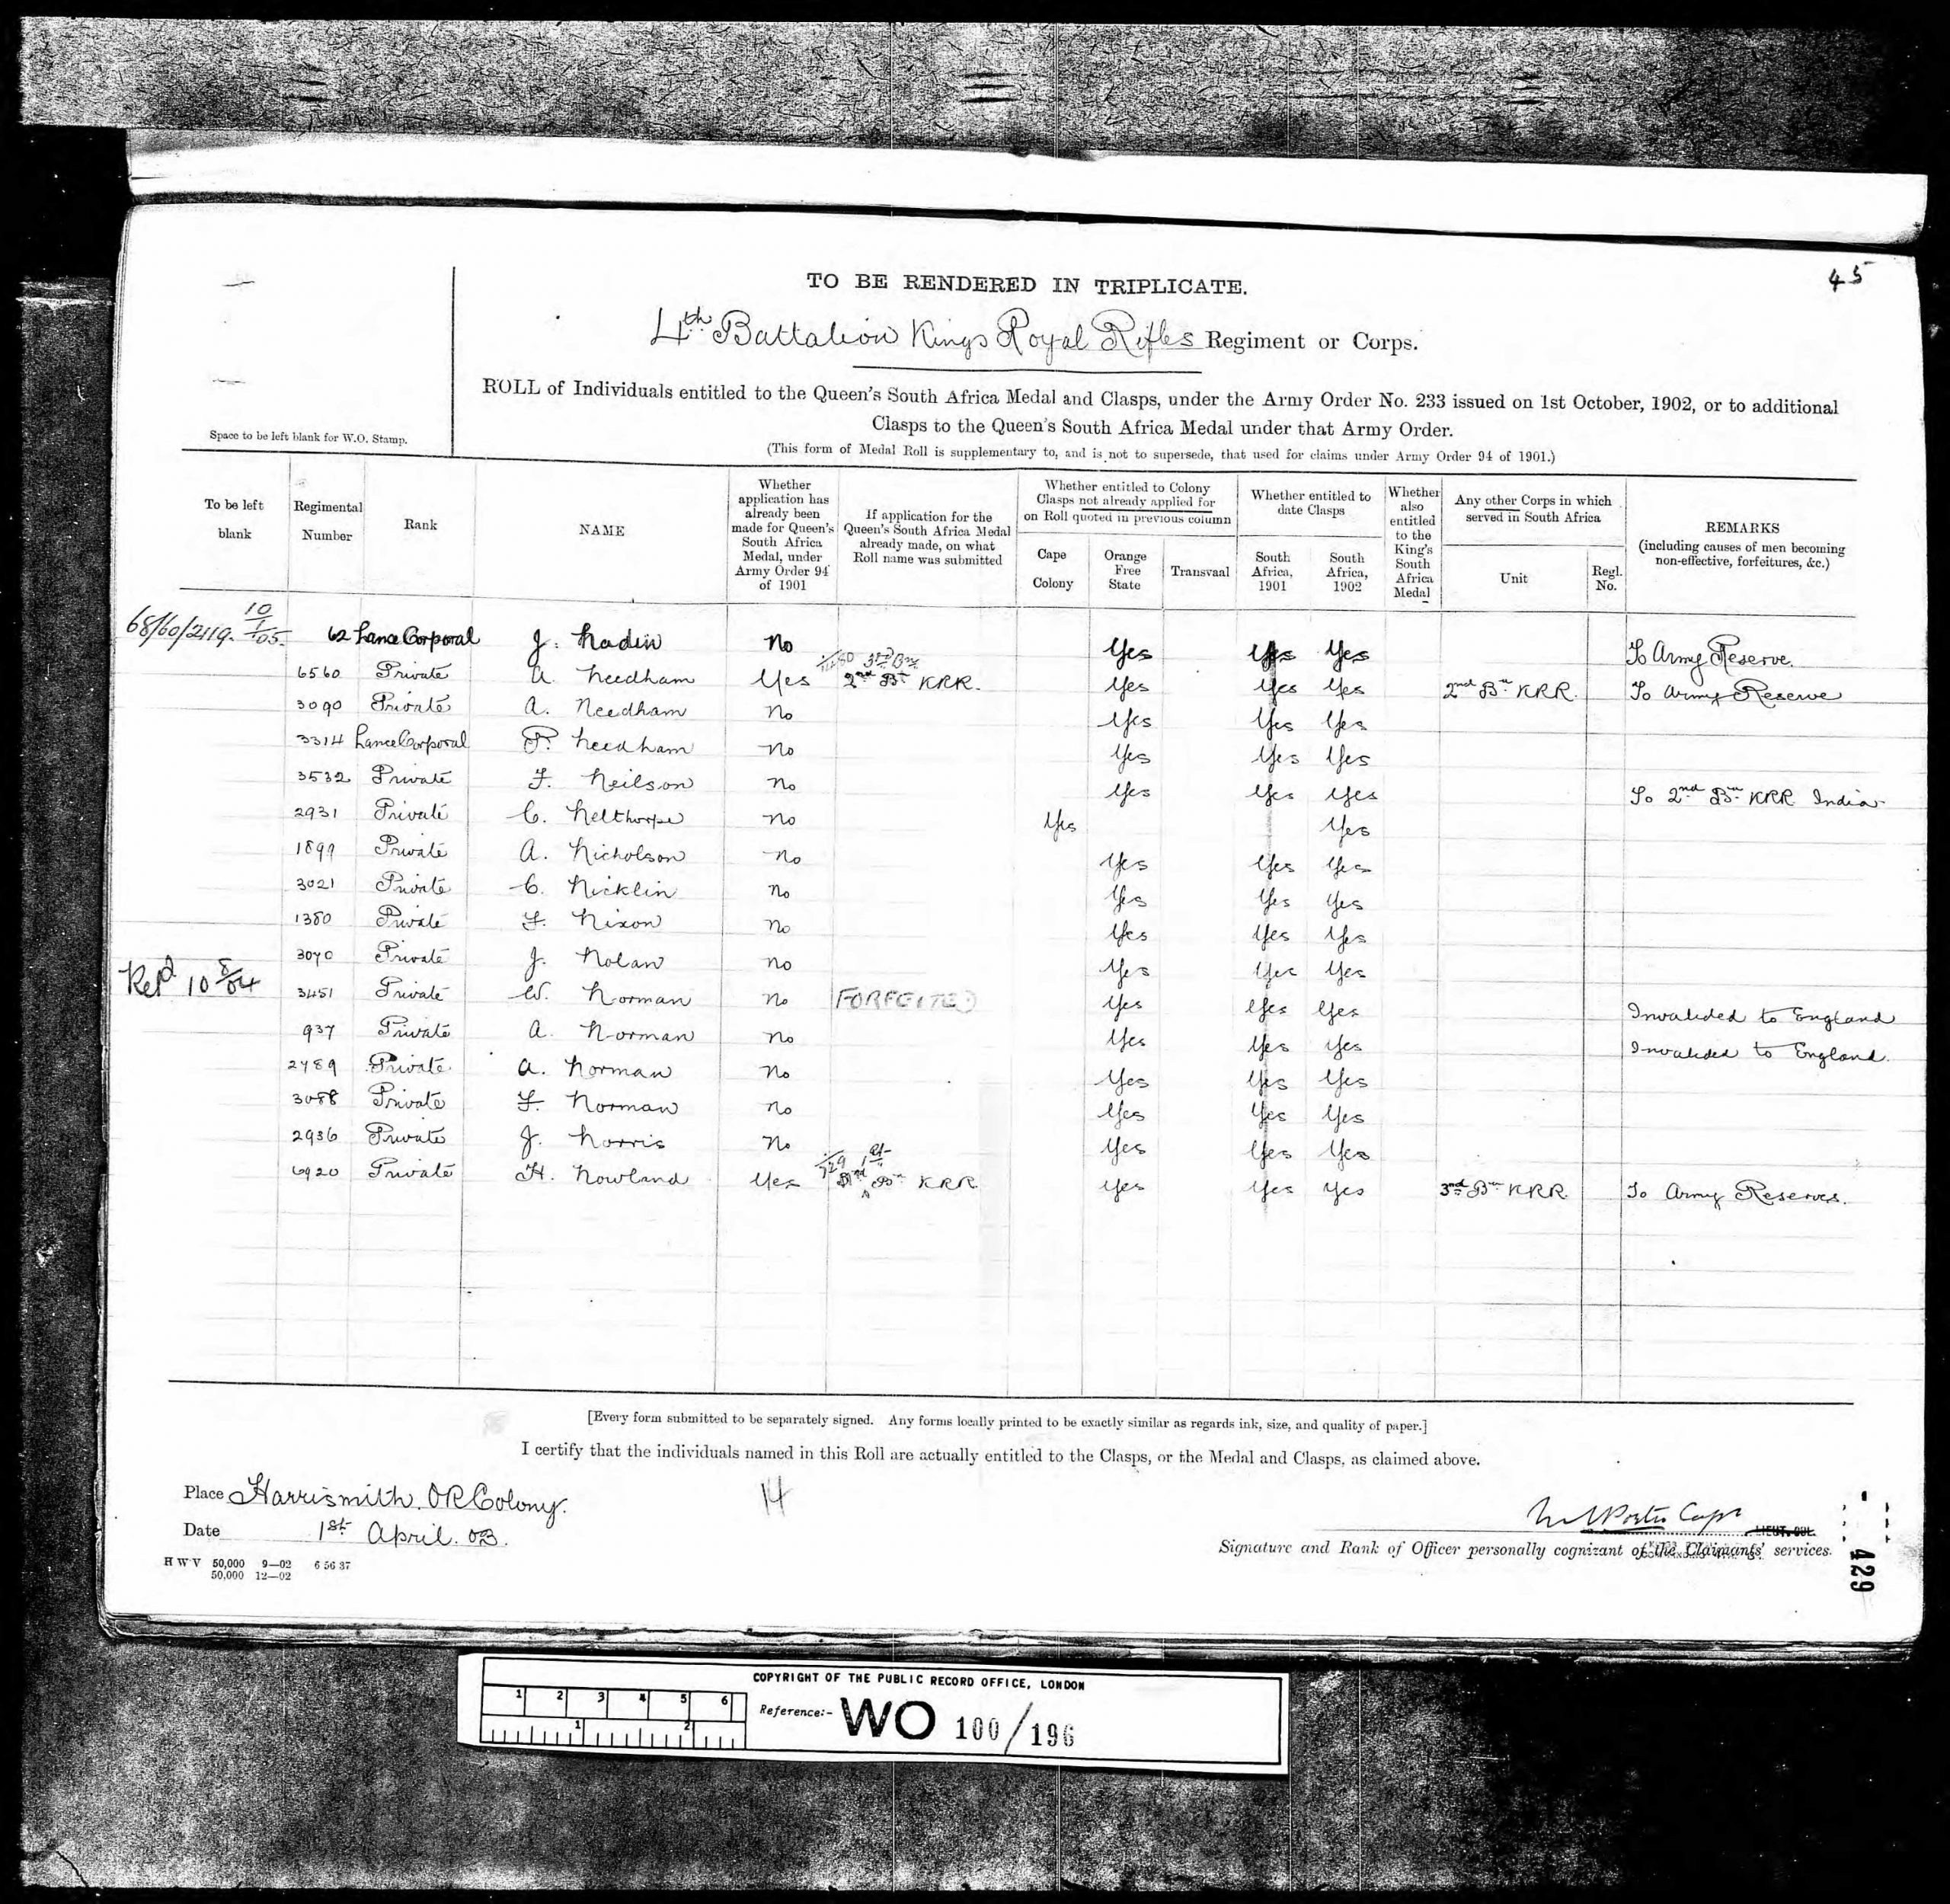 45
TO BE RENDERED IN TRIPLICATE.
4th Battalion Kings Royal Rifles Regiment or Corps.
ROLL of Individuals entitled to the Queen's South Africa Medal and Clasps, under the Army Order No. 233 issued on 1st October, 1902, or to additional
Clasps to the Queen's South Africa Medal under that Army Order.
(This form of Medal Roll is supplementary to, and is not to supersede, that used for claims under Army Order 94 of 1901.)
Space to be left blank for W.O. Stamp.
To be left blank
Regimental Number
Rank
NAME
Whether application has already been made for Queen's South Africa Medal, under Army Order 94 of 1901
If application for the Queen's South Africa Medal already made, on what Roll name was submitted
Whether entitled to Colony Clasps not already applied for on Roll quoted in previous column
Cape Colony
Orange Free State
Transvaal
Whether entitled to date Clasps
South Africa, 1901
South Africa, 1902
Whether also entitled to the King's South Africa Medal
Any other Corps in which served in South Africa
Unit
Regl. No.
REMARKS
(including causes of men becoming non-effective, forfeitures, &c.)
68/60/2119. 10/1/05. 62 Lance Corporal J. Nadin No Yes Yes Yes To Army Reserve.
3rd Bn
6560 Private A. Needham Yes 2nd Bt KRR. Yes Yes Yes 2nd Bn KRR. To Army Reserve
3090 Private A. Needham No Yes Yes Yes
3314 Lance Corporal P. Needham No Yes Yes Yes
3532 Private F. Neilson No Yes Yes Yes To 2nd Bn KRR India
2931 Private C. Nelthorpe No Yes Yes
1899 Private A. Nicholson No Yes Yes Yes
3021 Private C. Nicklin No Yes Yes Yes
1380 Private F. Nixon No Yes Yes Yes
3070 Private J. Nolan No Yes Yes Yes
Repd 10 8/04 3451 Private W. Norman No FORFEITED Yes Yes Yes Invalided to England
937 Private A. Norman No Yes Yes Yes Invalided to England.
2789 Private A. Norman No Yes Yes Yes
3088 Private F. Norman No Yes Yes Yes
2936 Private J. Norris No Yes Yes Yes
729 1st
6920 Private H. Nowland Yes Bn KRR Yes Yes Yes 3rd Bn KRR. To Army Reserves.
[Every form submitted to be separately signed. Any forms locally printed to be exactly similar as regards ink, size, and quality of paper.]
I certify that the individuals named in this Roll are actually entitled to the Clasps, or the Medal and Clasps, as claimed above.
Place Harrismith. OR Colony.
14
Date 1st April. 03.
Porter Capt LIEUT. COL.
Signature and Rank of Officer personally cognizant of the Claimants' services.
H W V 50,000 9—02 6 56 37
50,000 12—02
429
COPYRIGHT OF THE PUBLIC RECORD OFFICE, LONDON
1 2 3 4 5 6
1 2
Reference:- WO 100/196